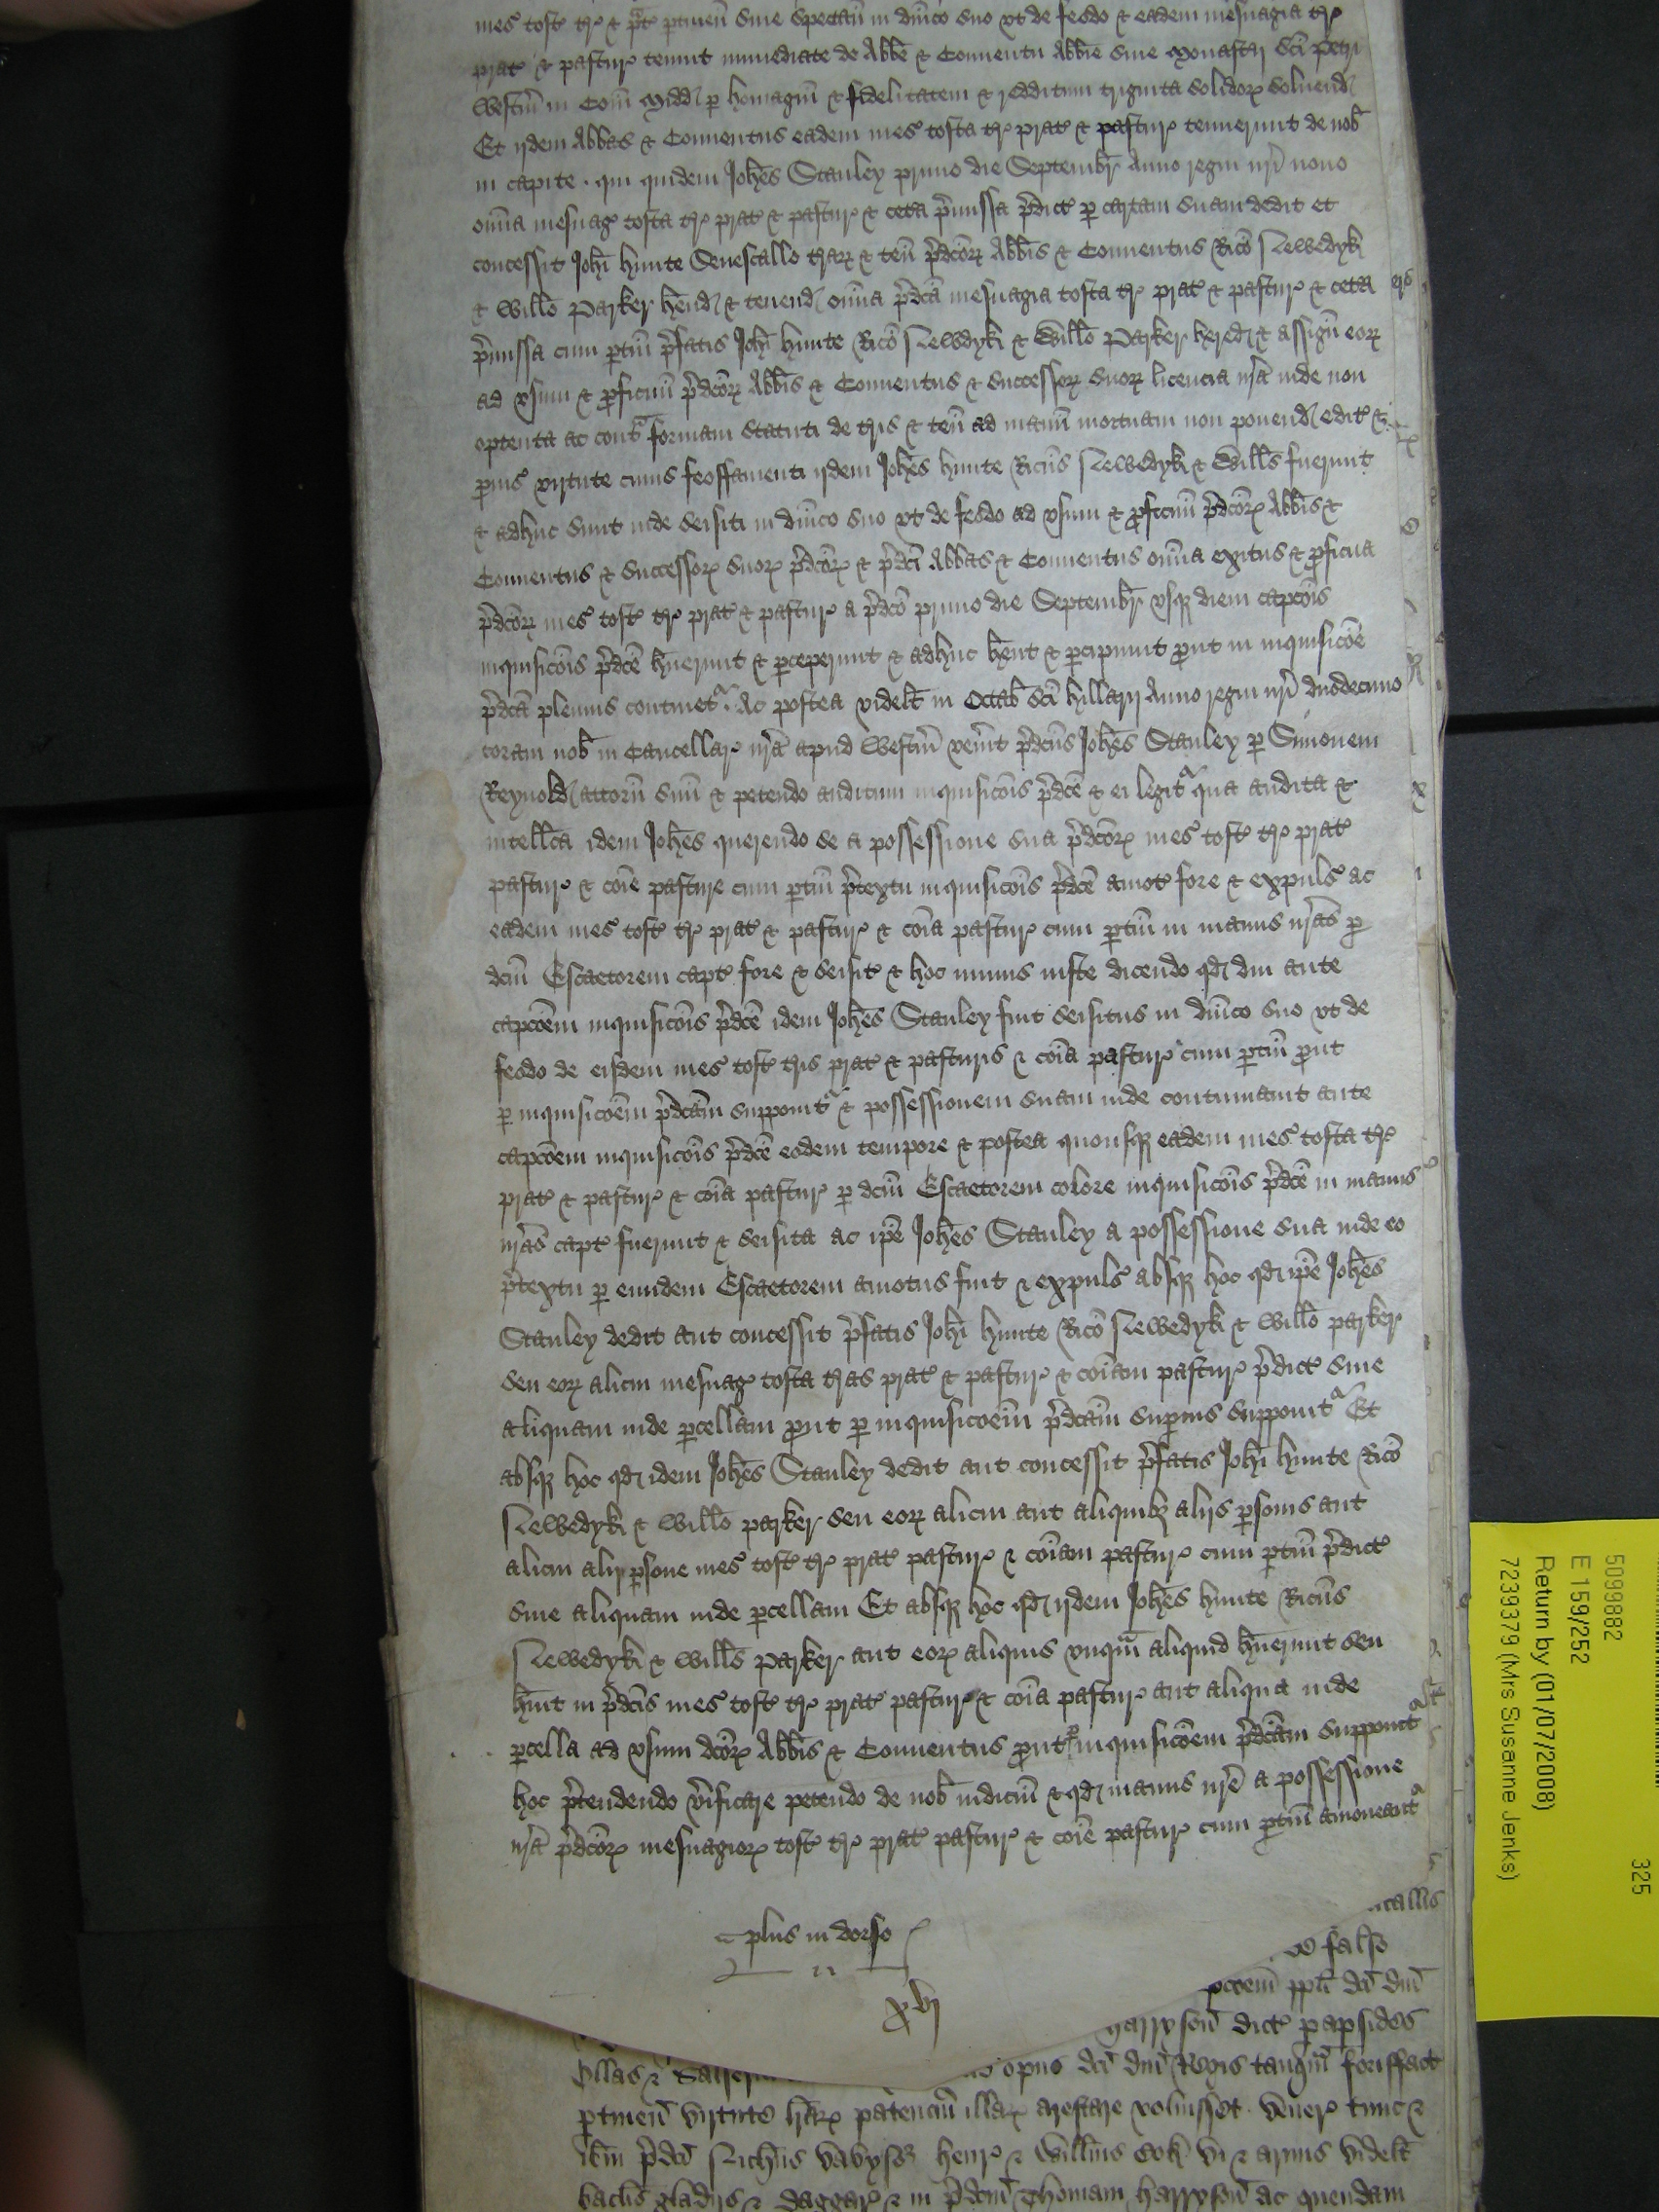 mes' toft' t're & p'at' p'tinen' siue spectan' in d'nico suo vt de feodo & eadem mesuagia t're
prat' & pastur' tenuit immediate de Abb'e & Conuentu Abb'ie siue Monasterij S'ci Petri
Westm' in Com' Midd' p' homagiu' & fidelitatem & redditum triginta solidor' soluend'
Et ijdem Abbas & Conuentus eadem mes' tofta t're prat' & pastur' tenuerunt de nob'
in capite . qui quidem Joh'es Stanley primo die Septembr' Anno regni n'ri nono
om'ia mesuag' tofta t're prat' & pastur' & cet'a p'missa p'dict' p' cartam suam dedit et
concessit Joh'i Hunte Senescallo t'rar' & ten' p'd'cor' Abb'is & Conuentus Ric'o Lewedyk
& Will'o Parker h'end' & tenend' om'ia p'd'ca mesuagia tofta t're prat' & pastur' & cet'a
p'missa cum p'tin' p'fatis Joh'i Hunte Ric'o Lewedyk & Will'o Parker hered' & assign' eor'
ad vsum & p'ficuu' p'd'cor' Abb'is & Conuentus & successor' suor' licencia n'ra inde non
optenta ac cont' formam statuti de t'ris & ten' ad manu' mortuam non ponend' edit' &
p'uis' virtute cuius feoffamenti ijdem Joh'es Hunte Ric'us Lewedyk & Will's fuerunt
& adhuc sunt inde seisiti in d'nico suo vt de feodo ad vsum & p'ficuu' p'd'cor' Abb'is &
Conuentus & successor' suor' p'd'cor' & p'd'ci Abbas & Conuentus om'ia exitus & p'ficua
p'd'cor' mes' toft' t're prat' & pastur' a p'd'co primo die Septembr' vsq' diem capc'o'is
inquisic'o'is p'd'ce h'uerunt & p'ceperunt & adhuc h'ent & p'cipiunt p'ut in inquisic'o'e
p'd'ca plenius continet' . Ac postea videl't in Octab' S'ci Hillarij Anno regni n'ri duodecimo
coram nob' in Cancellar' n'ra apud Westm' ven'it p'd'cus Joh'es Stanley p' Simonem
Reynold' attorn' suu' & petendo auditum inquisic'o'is p'd'ce & ei legit' qua audita &
intell'ca idem Joh'es querendo se a possessione sua p'd'cor' mes' toft' t're prat'
pastur' & co'ie pasture cum p'tin' p'textu inquisic'o'is p'd'ce amot' fore & expuls' ac
eadem mes' toft' t're prat' & pastur' & co'ia pastur' cum p'tin' in manus n'ras p'
d'cm' Escaetorem capt' fore & seisit' & hoc minus iuste dicendo q'd diu ante
capc'o'em inquisic'o'is p'd'ce idem Joh'es Stanley fuit seisitus in d'nico suo vt de
feodo de eisdem mes' toft' t'ris prat' & pasturis & co'ia pastur' cum p'tin' p'ut
p' inquisic'o'em p'd'cam supponit' & possessionem suam inde continuauit ante
capc'o'em inquisic'o'is p'd'ce eodem tempore & postea quousq' eadem mes' tofta t're
prat' & pastur' & co'ia pastur' p' d'cm' Escaetorem colore inquisic'o'is p'd'ce in manus
n'ras capt' fuerunt & seisita ac ip'e Joh'es Stanley a possessione sua inde eo
p'textu p' eundem Escaetorem amotus fuit & expuls' absq' hoc q'd ip'e Joh'es
Stanley dedit aut concessit p'fatis Joh'i Hunte Ric'o Lewedyk & Will'o Parker
seu eor' alicui mesuag' tofta t'ras prat' & pastur' & co'iam pastur' p'dict' siue
aliquam inde p'cellam p'ut p' inquisic'o'em p'd'cam sup'ius supponit' Et
absq' hoc q'd idem Joh'es Stanley dedit aut concessit p'fatis Joh'i Hunte Ric'o
Lewedyk & Will'o Parker seu eor' alicui aut aliquib' alijs p'sonis aut
alicui alij p'sone mes' toft' t're prat' pastur' & co'iam pastur' cum p'tin' p'dict'
siue aliquam inde p'cellam Et absq' hoc q'd ijdem Joh'es Hunte Ric'us
Lewedyk & Will's Parker aut eor' aliquis vnq'm aliquid h'uerunt seu
h'nt in p'd'cis mes' toft' t're prat' pastur' & co'ia pastur' aut aliqua inde
p'cella ad vsum d'cor' Abb'is & Conuentus p'ut p' inquisic'o'em p'd'cam supponit'
hoc p'tendendo v'ificare petendo de nob' iudiciu' & q'd manus n're a possessione
n'ra p'd'cor' mesuagior' toft' t're prat' pastur' & co'ie pastur' cum p'tin' amoueant'
plus in dorso
xvj
falso
d'ci d'ni
Harryson' dict' papsides
Ollas & opus d'ci d'ni Regis tanq'm forisfact'
p'tinen' virtute l'rar' patenciu' illar' arestare voluisset . Vener' tunc &
ib'm p'd'ci Henr' & Will'mus Cok vi & armis videl't
bac'lis gladijs & daggar' & in p'd'cm Thomam Harryson' ac quendam
5099882
E 159/252
Return by (01/07/2008)
7239379 (Mrs Susanne Jenks)
325